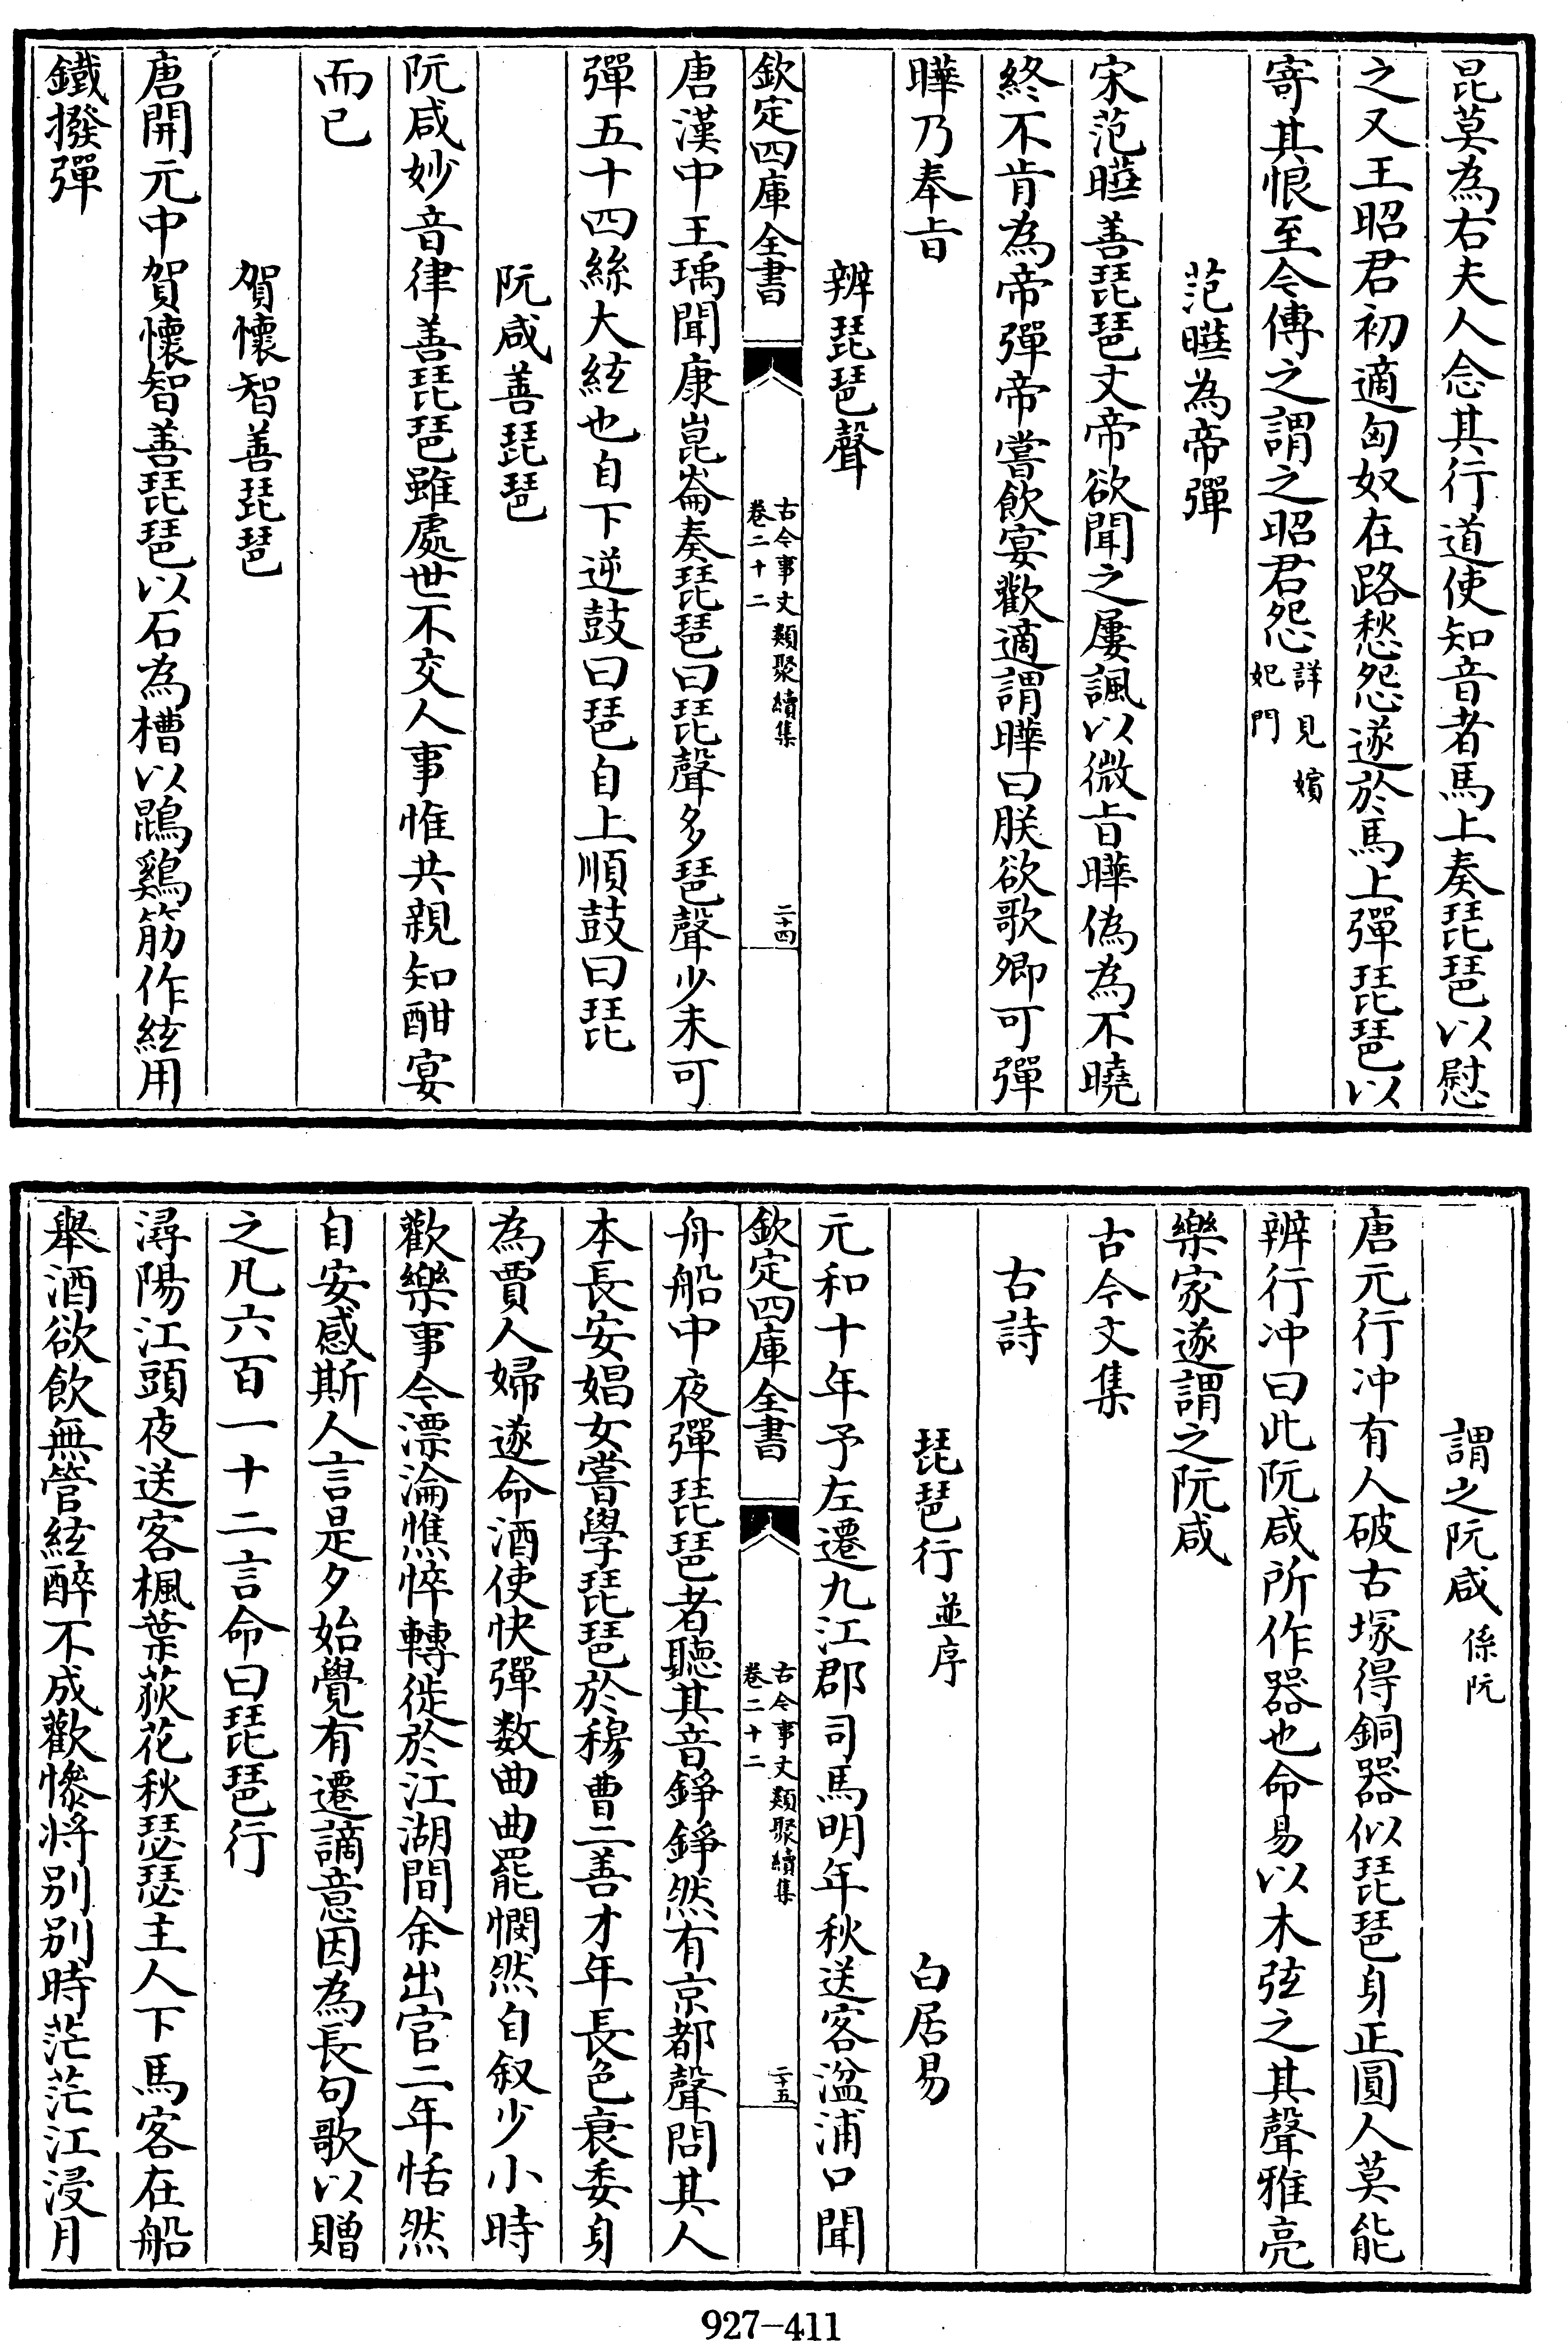 昆莫為右夫人念其行道使知音者馬上奏琵琶以慰
之又王昭君初適匈奴在路愁怨遂於馬上彈琵琶以
寄其恨至今傳之謂之昭君怨詳見嬪
妃門
范曄為帝彈
宋范曄善琵琶文帝欲聞之屢諷以微旨曄偽為不曉
終不肯為帝彈帝嘗飲宴歡適謂曄曰朕欲歌卿可彈
曄乃奉旨
辨琵琶聲
欽定四庫全書
古今事文類聚續集
卷二十二
二十四
唐漢中王瑀聞康崑崙奏琵琶曰琵聲多琶聲少未可
彈五十四絲大絃也自下逆鼓曰琶自上順鼓曰琵
阮咸善琵琶
阮咸妙音律善琵琶雖處世不交人事惟共親知酣宴
而已
賀懷智善琵琶
唐開元中賀懷智善琵琶以石為槽以鵾鷄筋作絃用
鐵撥彈
謂之阮咸係阮
唐元行冲有人破古塚得銅器似琵琶身正圓人莫能
辨行冲曰此阮咸所作器也命易以木弦之其聲雅亮
樂家遂謂之阮咸
古今文集
古詩
琵琶行並序 白居易
元和十年予左遷九江郡司馬明年秋送客湓浦口聞
欽定四庫全書
古今事文類聚續集
卷二十二
二十五
舟船中夜彈琵琶者聽其音錚錚然有京都聲問其人
本長安娼女嘗學琵琶於穆曹二善才年長色衰委身
為賈人婦遂命酒使快彈数曲曲罷憫然自叙少小時
歡樂事今漂淪憔悴轉徙於江湖間余出官二年恬然
自安感斯人言是夕始覺有遷謫意因為長句歌以贈
之凡六百一十二言命曰琵琶行
潯陽江頭夜送客楓葉荻花秋瑟瑟主人下馬客在船
舉酒欲飲無管絃醉不成歡慘将别别時茫茫江浸月
927-411